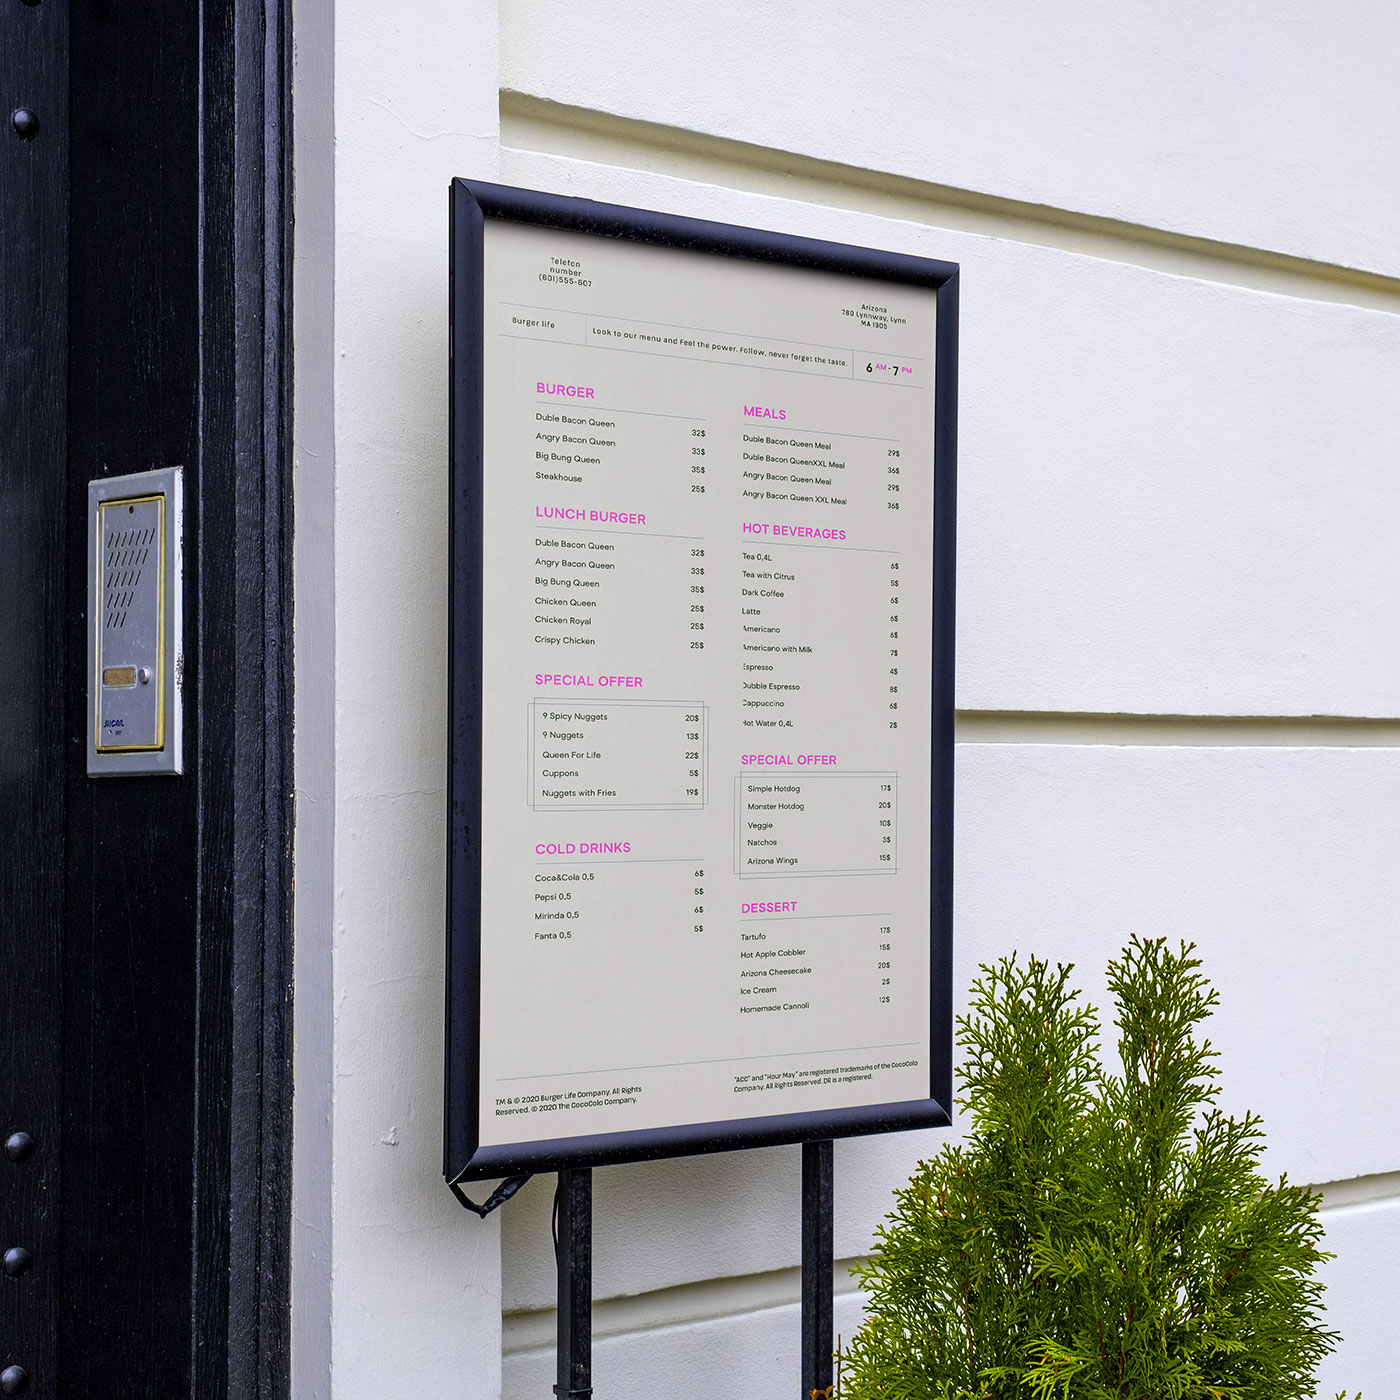 Telefon
number
(601)555-607
Arizona
780 Lynnway, Lynn
MA 1905
Burger life
Look to our menu and Feel the power. Follow, never forget the taste.
6 AM - 7 PM
BURGER
Duble Bacon Queen 32$
Angry Bacon Queen 33$
Big Bung Queen 35$
Steakhouse 25$
LUNCH BURGER
Duble Bacon Queen 32$
Angry Bacon Queen 33$
Big Bung Queen 35$
Chicken Queen 25$
Chicken Royal 25$
Crispy Chicken 25$
SPECIAL OFFER
9 Spicy Nuggets 20$
9 Nuggets 13$
Queen For Life 22$
Cuppons 5$
Nuggets with Fries 19$
COLD DRINKS
Coca&Cola 0,5 6$
Pepsi 0,5 5$
Mirinda 0,5 6$
Fanta 0,5 5$
MEALS
Duble Bacon Queen Meal 29$
Duble Bacon QueenXXL Meal 36$
Angry Bacon Queen Meal 29$
Angry Bacon Queen XXL Meal 36$
HOT BEVERAGES
Tea 0,4L 6$
Tea with Citrus 5$
Dark Coffee 6$
Latte 6$
Americano 6$
Americano with Milk 7$
Espresso 4$
Dubble Espresso 8$
Cappuccino 6$
Hot Water 0,4L 2$
SPECIAL OFFER
Simple Hotdog 17$
Monster Hotdog 20$
Veggie 10$
Natchos 3$
Arizona Wings 15$
DESSERT
Tartufo 17$
Hot Apple Cobbler 15$
Arizona Cheesecake 20$
Ice Cream 2$
Homemade Cannoli 12$
TM & © 2020 Burger Life Company. All Rights
Reserved. © 2020 The CocoColo Company.
"ACC" and "Hour May" are registered trademarks of the CocoColo
Company. All Rights Reserved. DR is a registered.